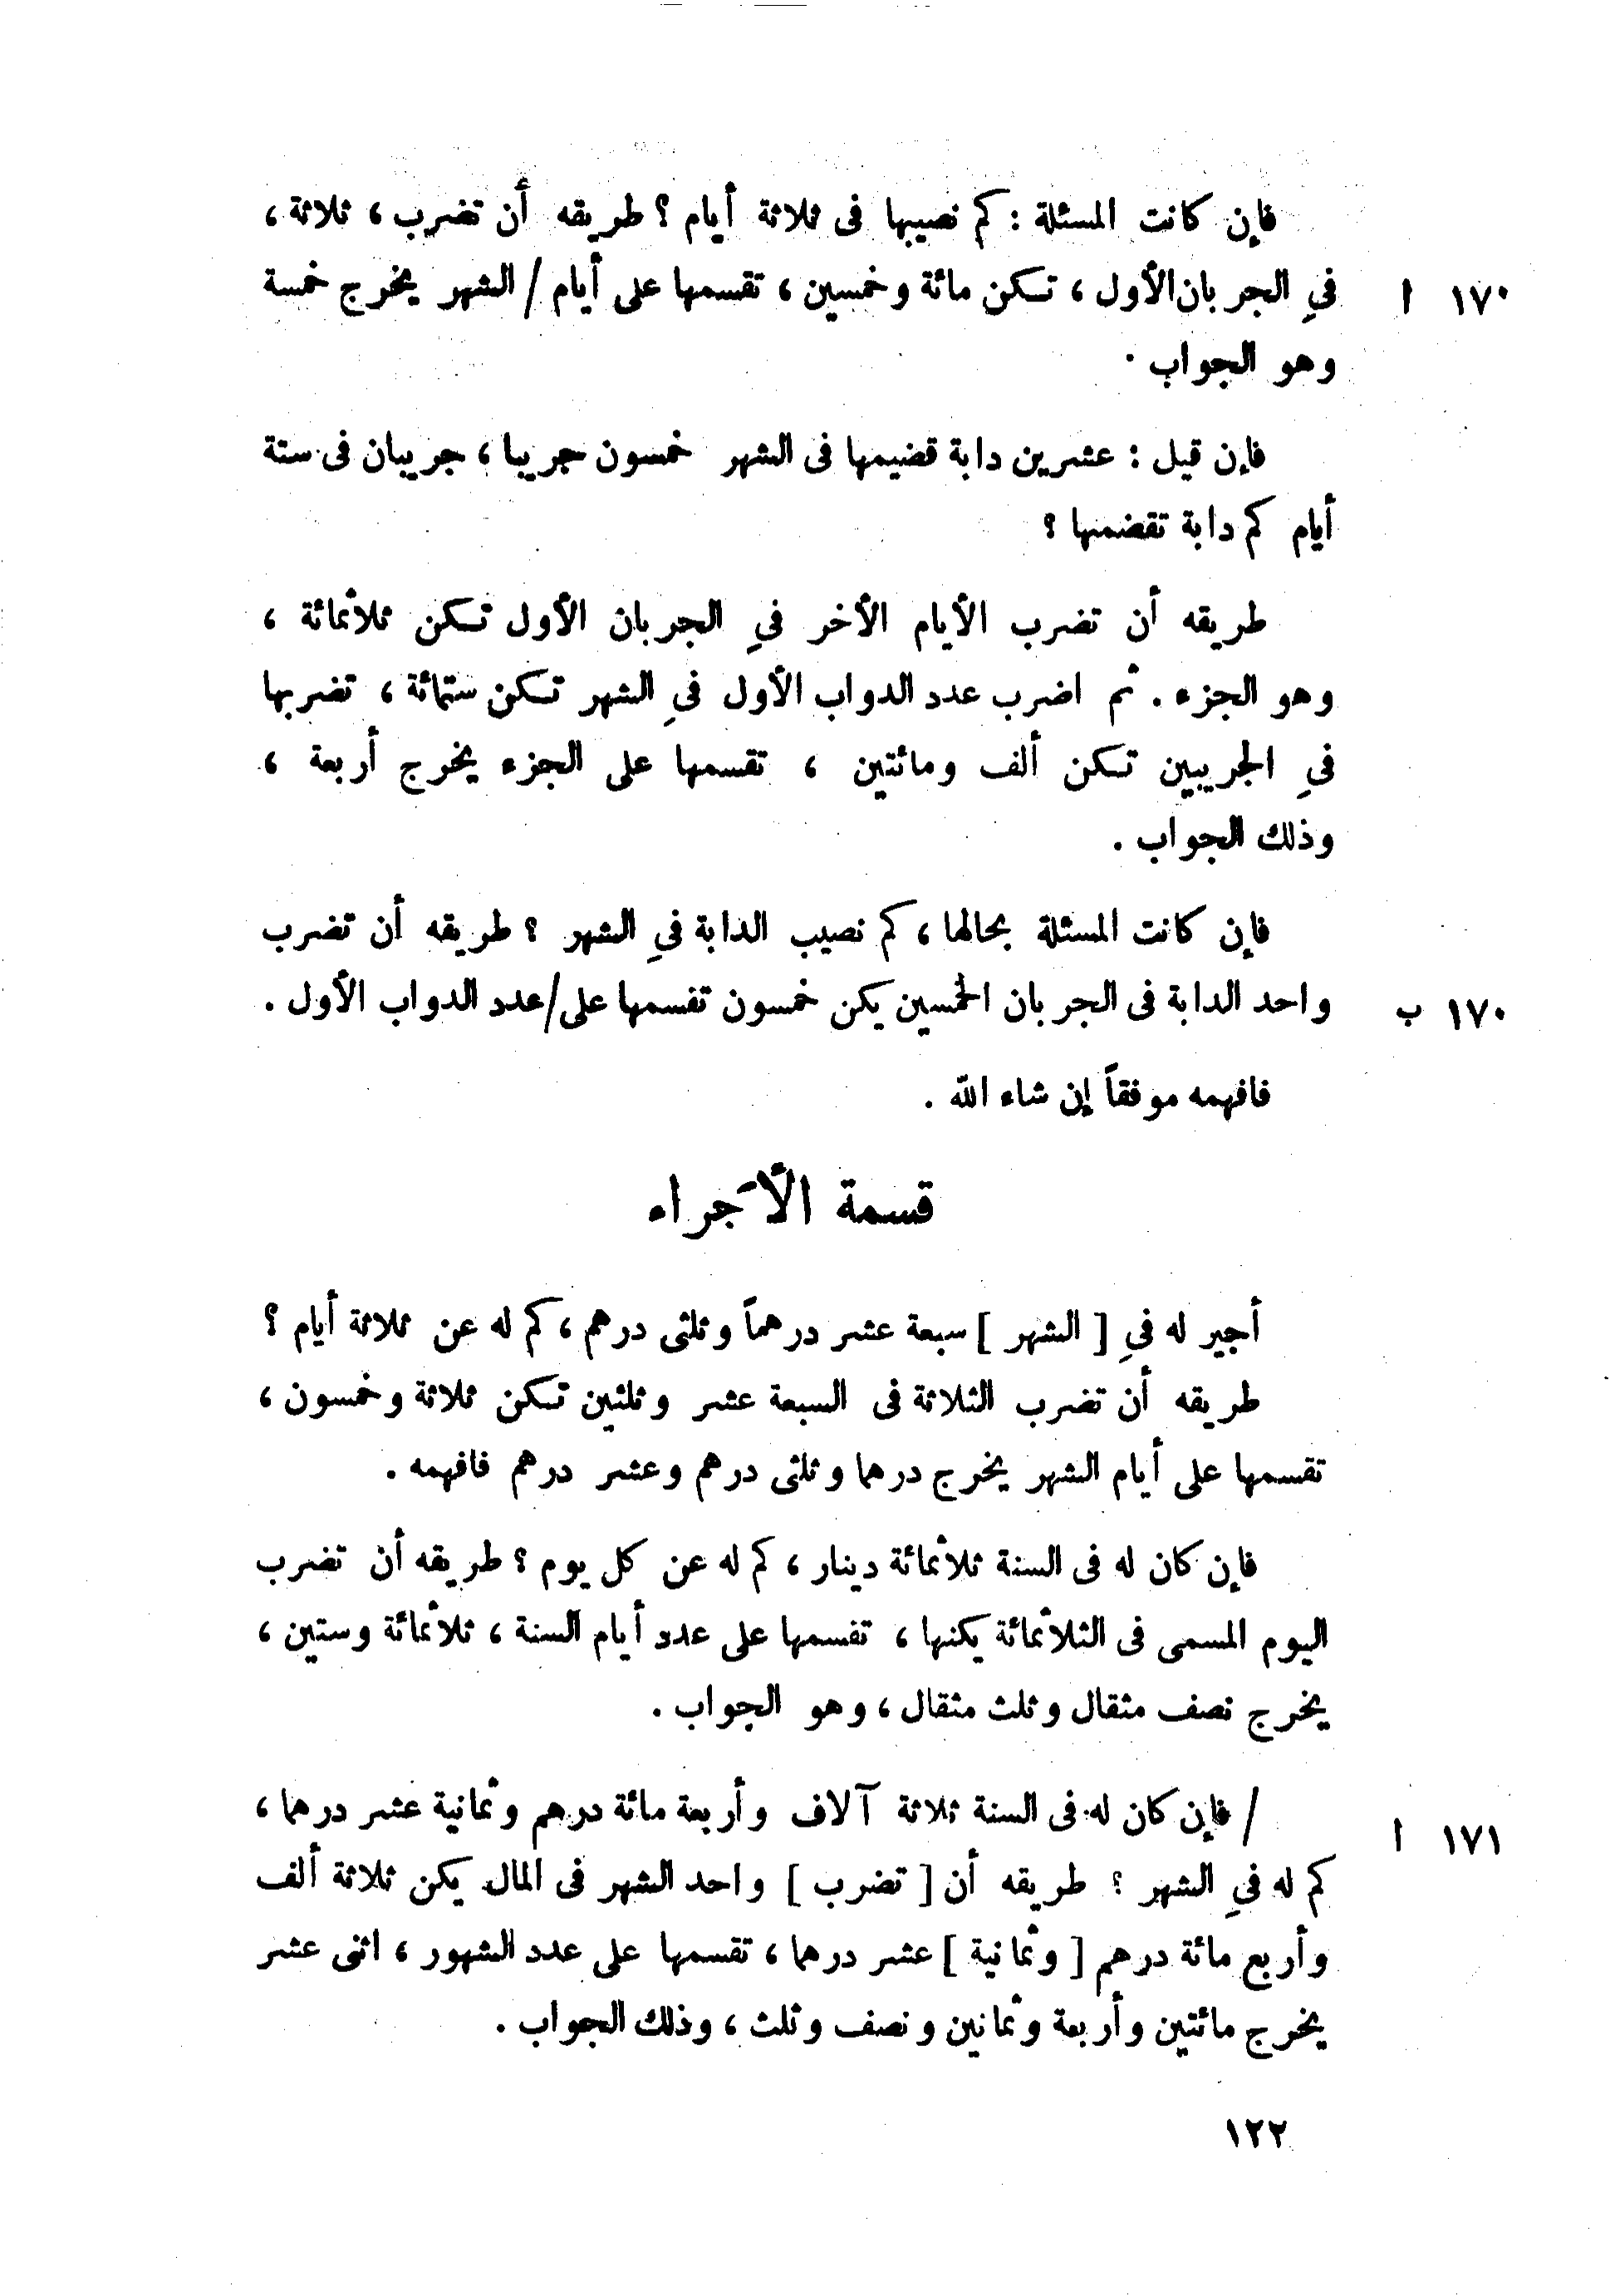 فإن كانت المسئلة : كم نصيبها فى ثلاثة أيام ؟ طريقه أن تضرب ، ثلاثة ،
١٧٠ ا في الجربان الأول ، تكن مائة وخمسين ، تقسمها على أيام / الشهر يخرج خمسة
وهو الجواب .
فإن قيل : عشرين دابة قضيمها فى الشهر خمسون جريبا ، جريبان فى ستة
أيام كم دابة تقضمها ؟
طريقه أن تضرب الأيام الأخر في الجربان الأول تكن ثلاثمائة ،
وهو الجزء . ثم اضرب عدد الدواب الأول في الشهر تكن ستمائة ، تضربها
في الجريبين تكن ألف ومائتين ، تقسمها على الجزء يخرج أربعة ،
وذلك الجواب .
فإن كانت المسئلة بحالها ، كم نصيب الدابة في الشهر ؟ طريقه أن تضرب
١٧٠ ب واحد الدابة فى الجربان الخمسين يكن خمسون تقسمها على/عدد الدواب الأول .
فافهمه موفقاً إن شاء الله .
قسمة الأجراء
أجير له في [ الشهر ] سبعة عشر درهماً وثلثى درهم ، كم له عن ثلاثة أيام ؟
طريقه أن تضرب الثلاثة فى السبعة عشر وثلثين تكن ثلاثة وخمسون ،
تقسمها على أيام الشهر يخرج درهما وثلثى درهم وعشر درهم فافهمه .
فإن كان له فى السنة ثلاثمائة دينار ، كم له عن كل يوم ؟ طريقه أن تضرب
اليوم المسمى فى الثلاثمائة يكنها ، تقسمها على عدد أيام السنة ، ثلاثمائة وستين ،
يخرج نصف مثقال وثلث مثقال ، وهو الجواب .
١٧١ ا / فإن كان له فى السنة ثلاثة آلاف وأربعة مائة درهم وثمانية عشر درهما ،
كم له في الشهر ؟ طريقه أن [ تضرب ] واحد الشهر فى المال يكن ثلاثة ألف
وأربع مائة درهم [ وثمانية ] عشر درهما ، تقسمها على عدد الشهور ، اثنى عشر
يخرج مائتين وأربعة وثمانين ونصف وثلث ، وذلك الجواب .
١٢٢